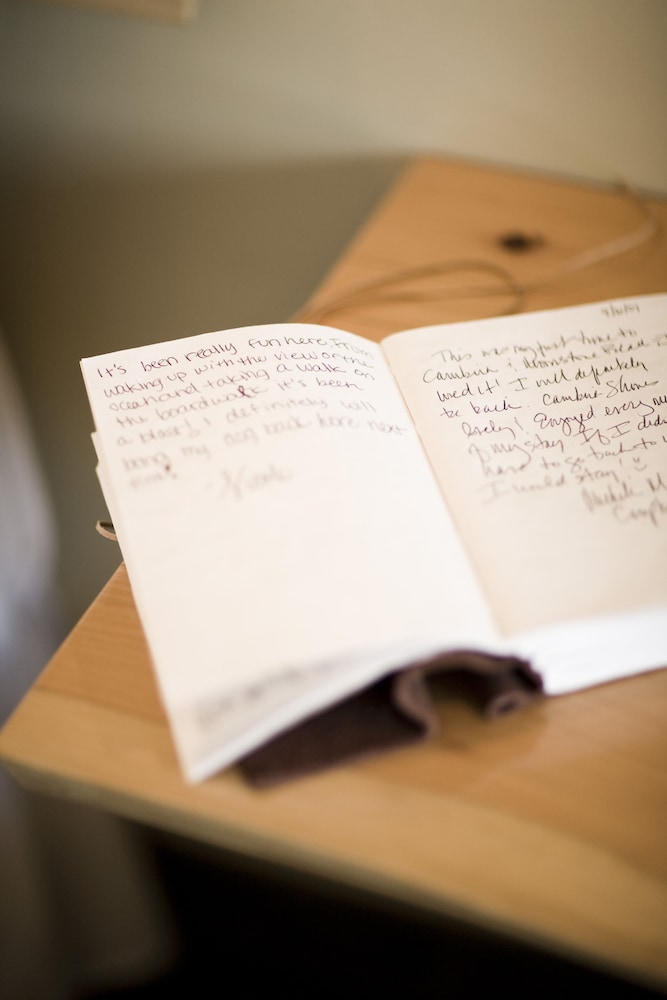 It's been really fun here. From
waking up with the view on the
ocean and taking a walk on
the boardwalk it's been
a blast! I definitely will
bring my dog back here next
time!
- Nicole
This was my first time to
Cambria & Moonstone Beach I
loved it! I will definitely
be back. Cambria Shores
lovely! Enjoyed every
of my stay. If I didn
have to go back to
I would stay!
Michele M